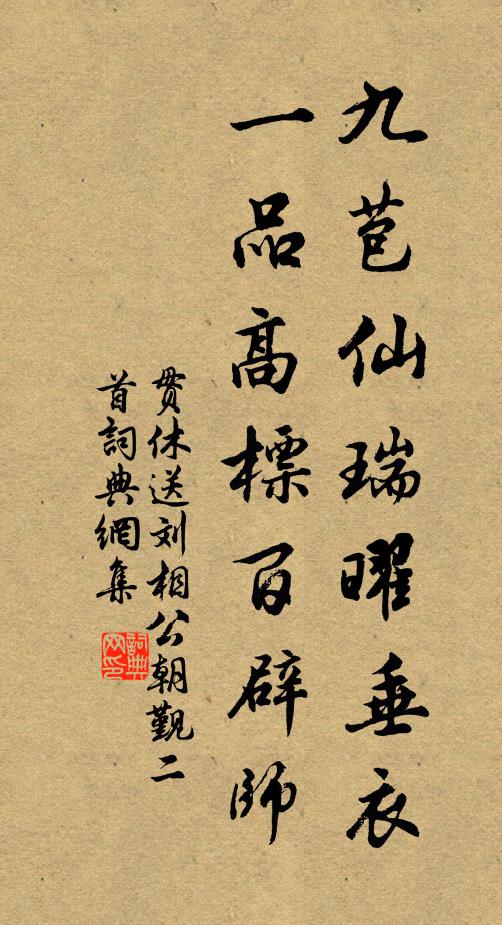 九苞仙瑞曜垂衣
一品高標百辟師
贯休送刘相公朝觐二
首詞典網集
詞典
网印